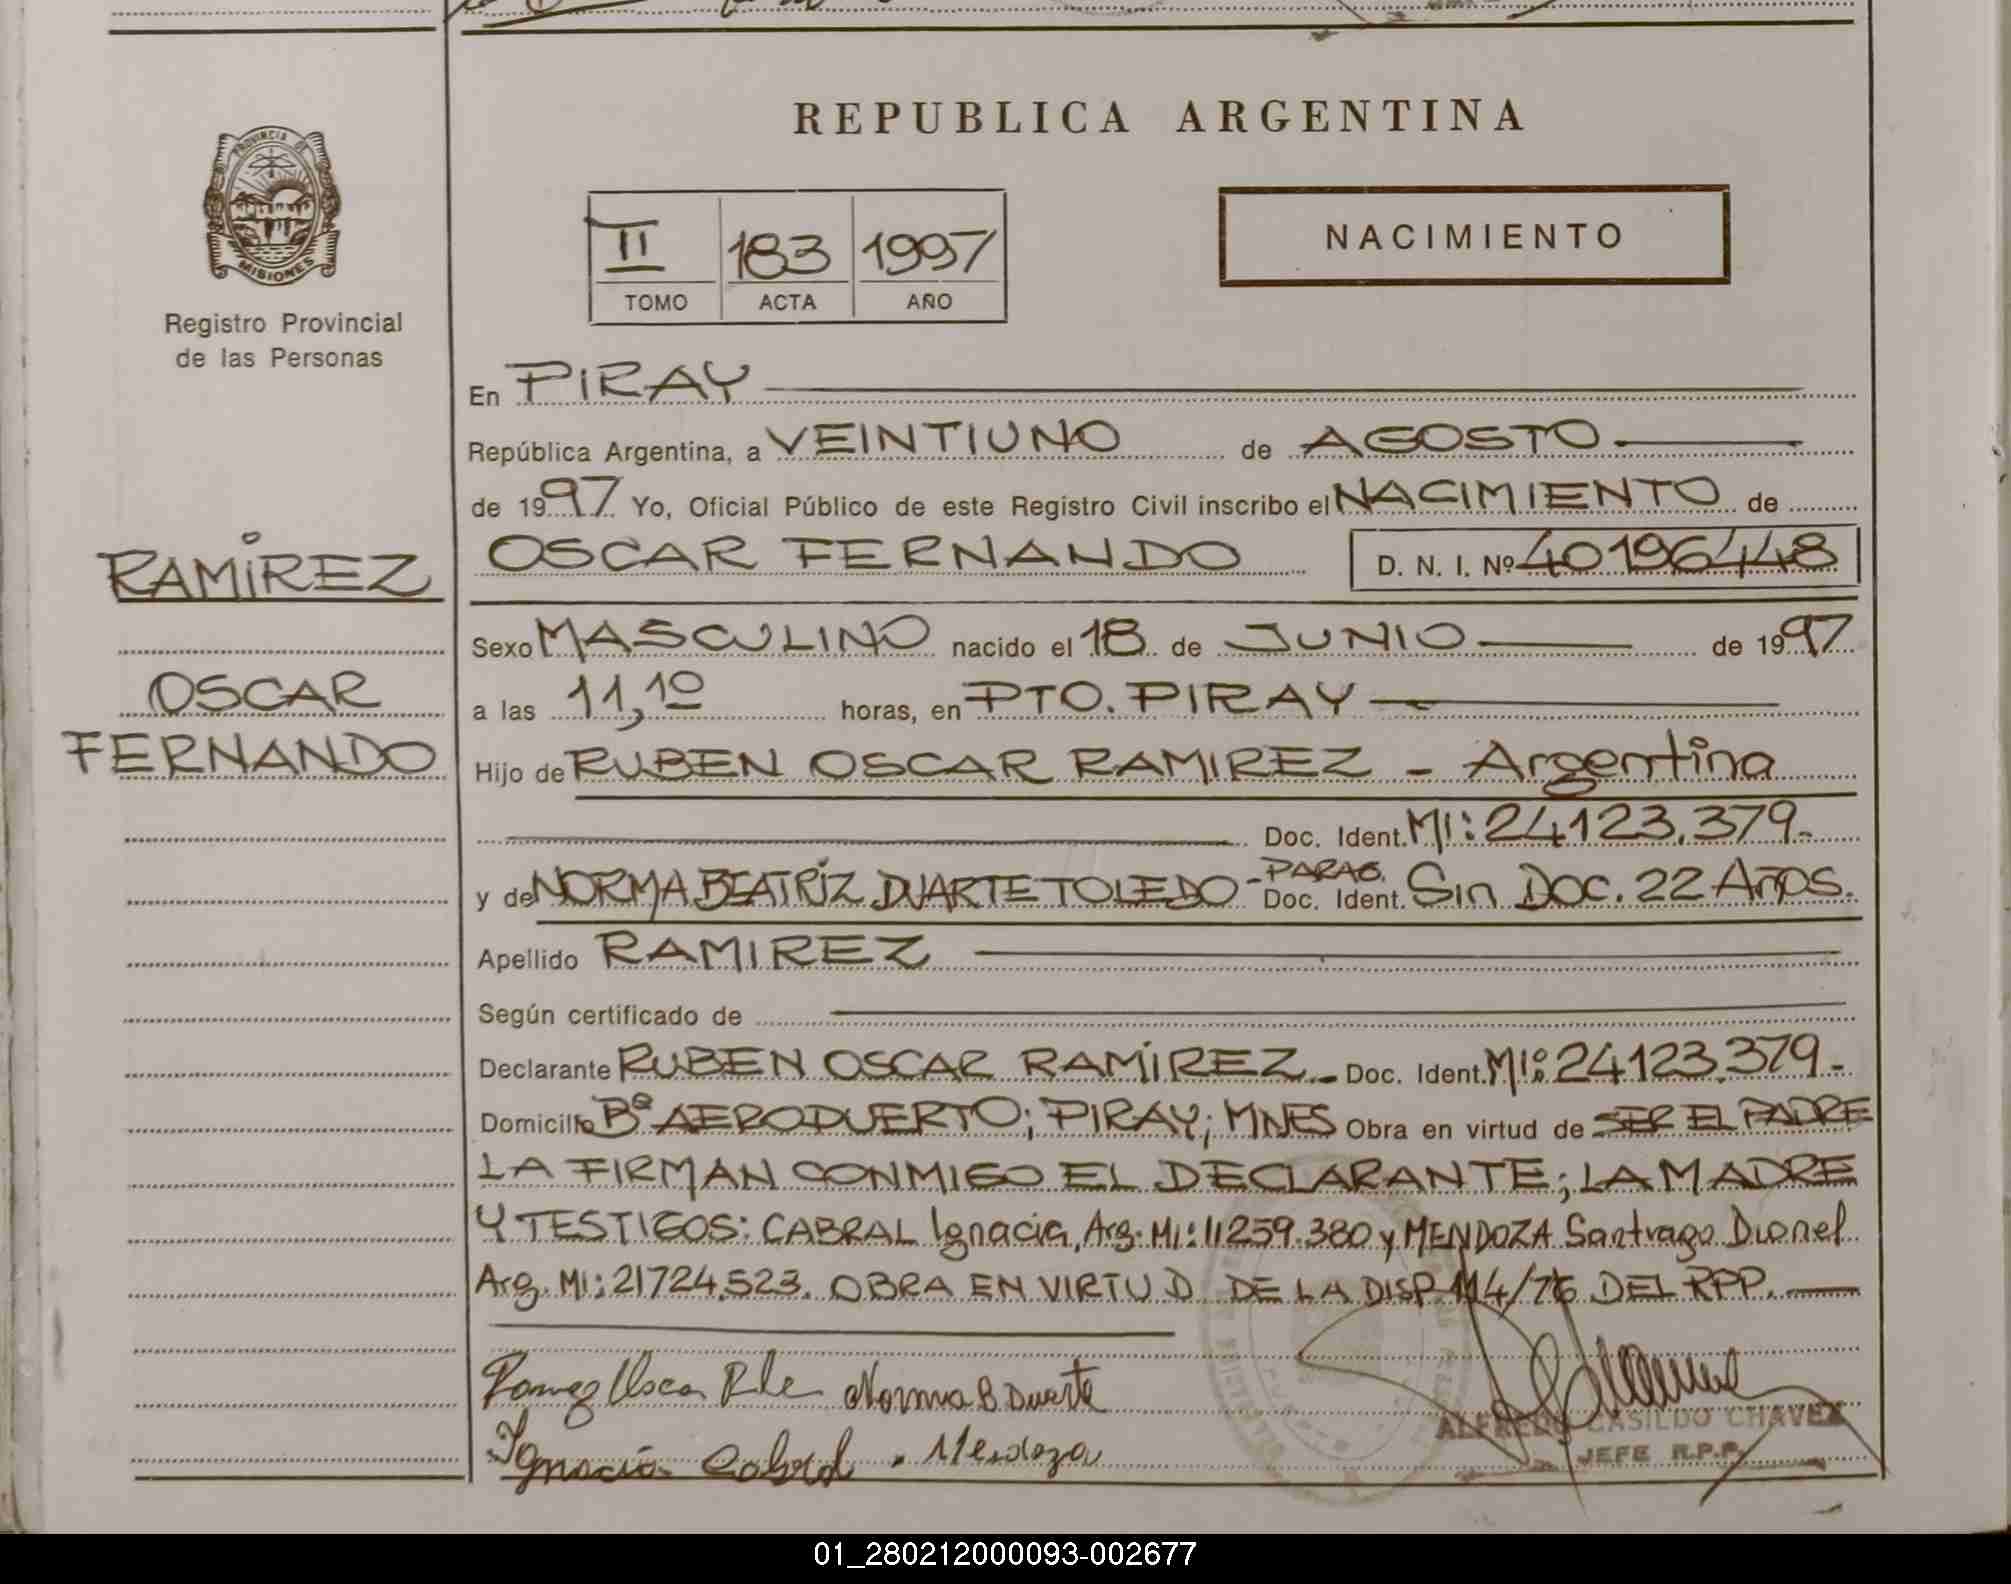 REPUBLICA ARGENTINA
PROVINCIA DE
MISIONES
Registro Provincial
de las Personas
II 183 1997
TOMO ACTA AÑO
NACIMIENTO
RAMIREZ
OSCAR
FERNANDO
En PIRAY
República Argentina, a VEINTIUNO de AGOSTO
de 1997 Yo, Oficial Público de este Registro Civil inscribo el NACIMIENTO de
OSCAR FERNANDO D. N. I. Nº 40196448
Sexo MASCULINO nacido el 18 de JUNIO de 1997
a las 11,10 horas, en PTO. PIRAY
Hijo de RUBEN OSCAR RAMIREZ - Argentina
Doc. Ident. MI: 24123.379.-
y de NORMA BEATRIZ DUARTE TOLEDO - PARAG. Doc. Ident. Sin DOC. 22 AÑOS.
Apellido RAMIREZ
Según certificado de
Declarante RUBEN OSCAR RAMIREZ.- Doc. Ident. MI: 24123.379.-
Domicilio Bº AEROPUERTO; PIRAY; MNES Obra en virtud de SER EL PADRE
LA FIRMAN CONMIGO EL DECLARANTE; LA MADRE
Y TESTIGOS: CABRAL Ignacia, Arg. MI: 11259.380 y MENDOZA Santiago Dionel
Arg. MI: 21724.523. OBRA EN VIRTUD DE LA DISP. 114/76 DEL RPP.
Norma B Duarte
Ignacia Cabral . Mendoza
ALFREDO CASILDO CHAVEZ
JEFE R.P.P.
01_280212000093-002677